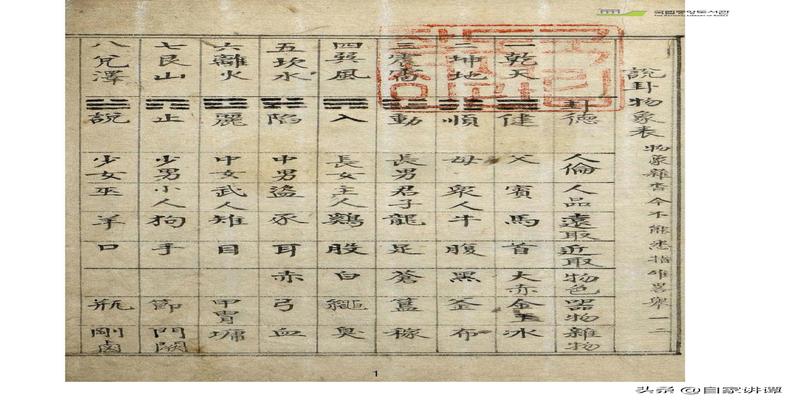 국립중앙도서관
THE NATIONAL LIBRARY OF KOREA
說卦物象表 物象雜今不能悉指畧舉一二
卦德 人倫 人品 遠取 近取 物色 器物 雜物
一乾天 ☰ 健 父 賓 馬 首 大赤 金玉 冰
二坤地 ☷ 順 母 衆人 牛 腹 黑 釜 布
三震雷 ☳ 動 長男 君子 龍 足 蒼 簋 稼
四巽風 ☴ 入 長女 主人 鷄 股 白 繩 臭
五坎水 ☵ 陷 中男 盜 豕 耳 赤 弓 血
六離火 ☲ 麗 中女 武人 雉 目 甲冑 墉
七艮山 ☶ 止 少男 小人 狗 手 節 門闕
八兌澤 ☱ 說 少女 巫 羊 口 瓶 剛鹵
1
头条 @自家讲谭